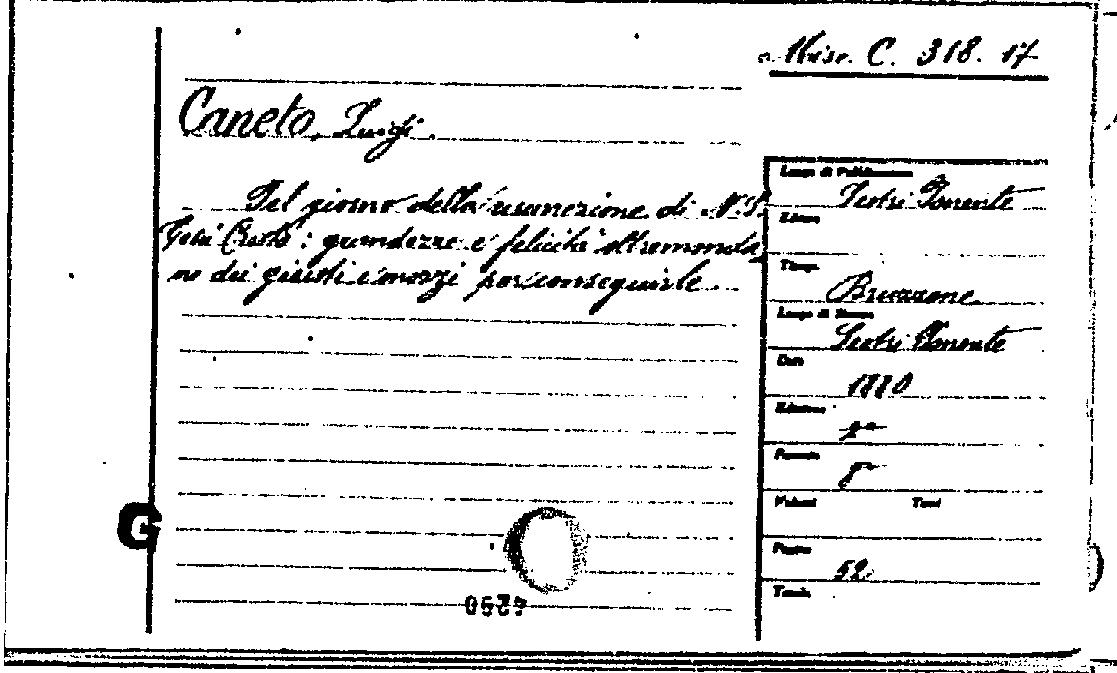 Misc. C. 318. 17
Caneto, Luigi.
Nel giorno della risurrezione di N. S.
Gesù Cristo: grandezze e felicità oltremonda
no dei giusti e mezzi per conseguirle
Luogo di Pubblicazione
Sestri Ponente
Editore
Tipogr.
Bruzzone
Luogo di Stampa
Sestri Ponente
Data
1880
Edizione
2ª
Formato
8º
Volumi Tomi
Pagine
52
Tavole
G